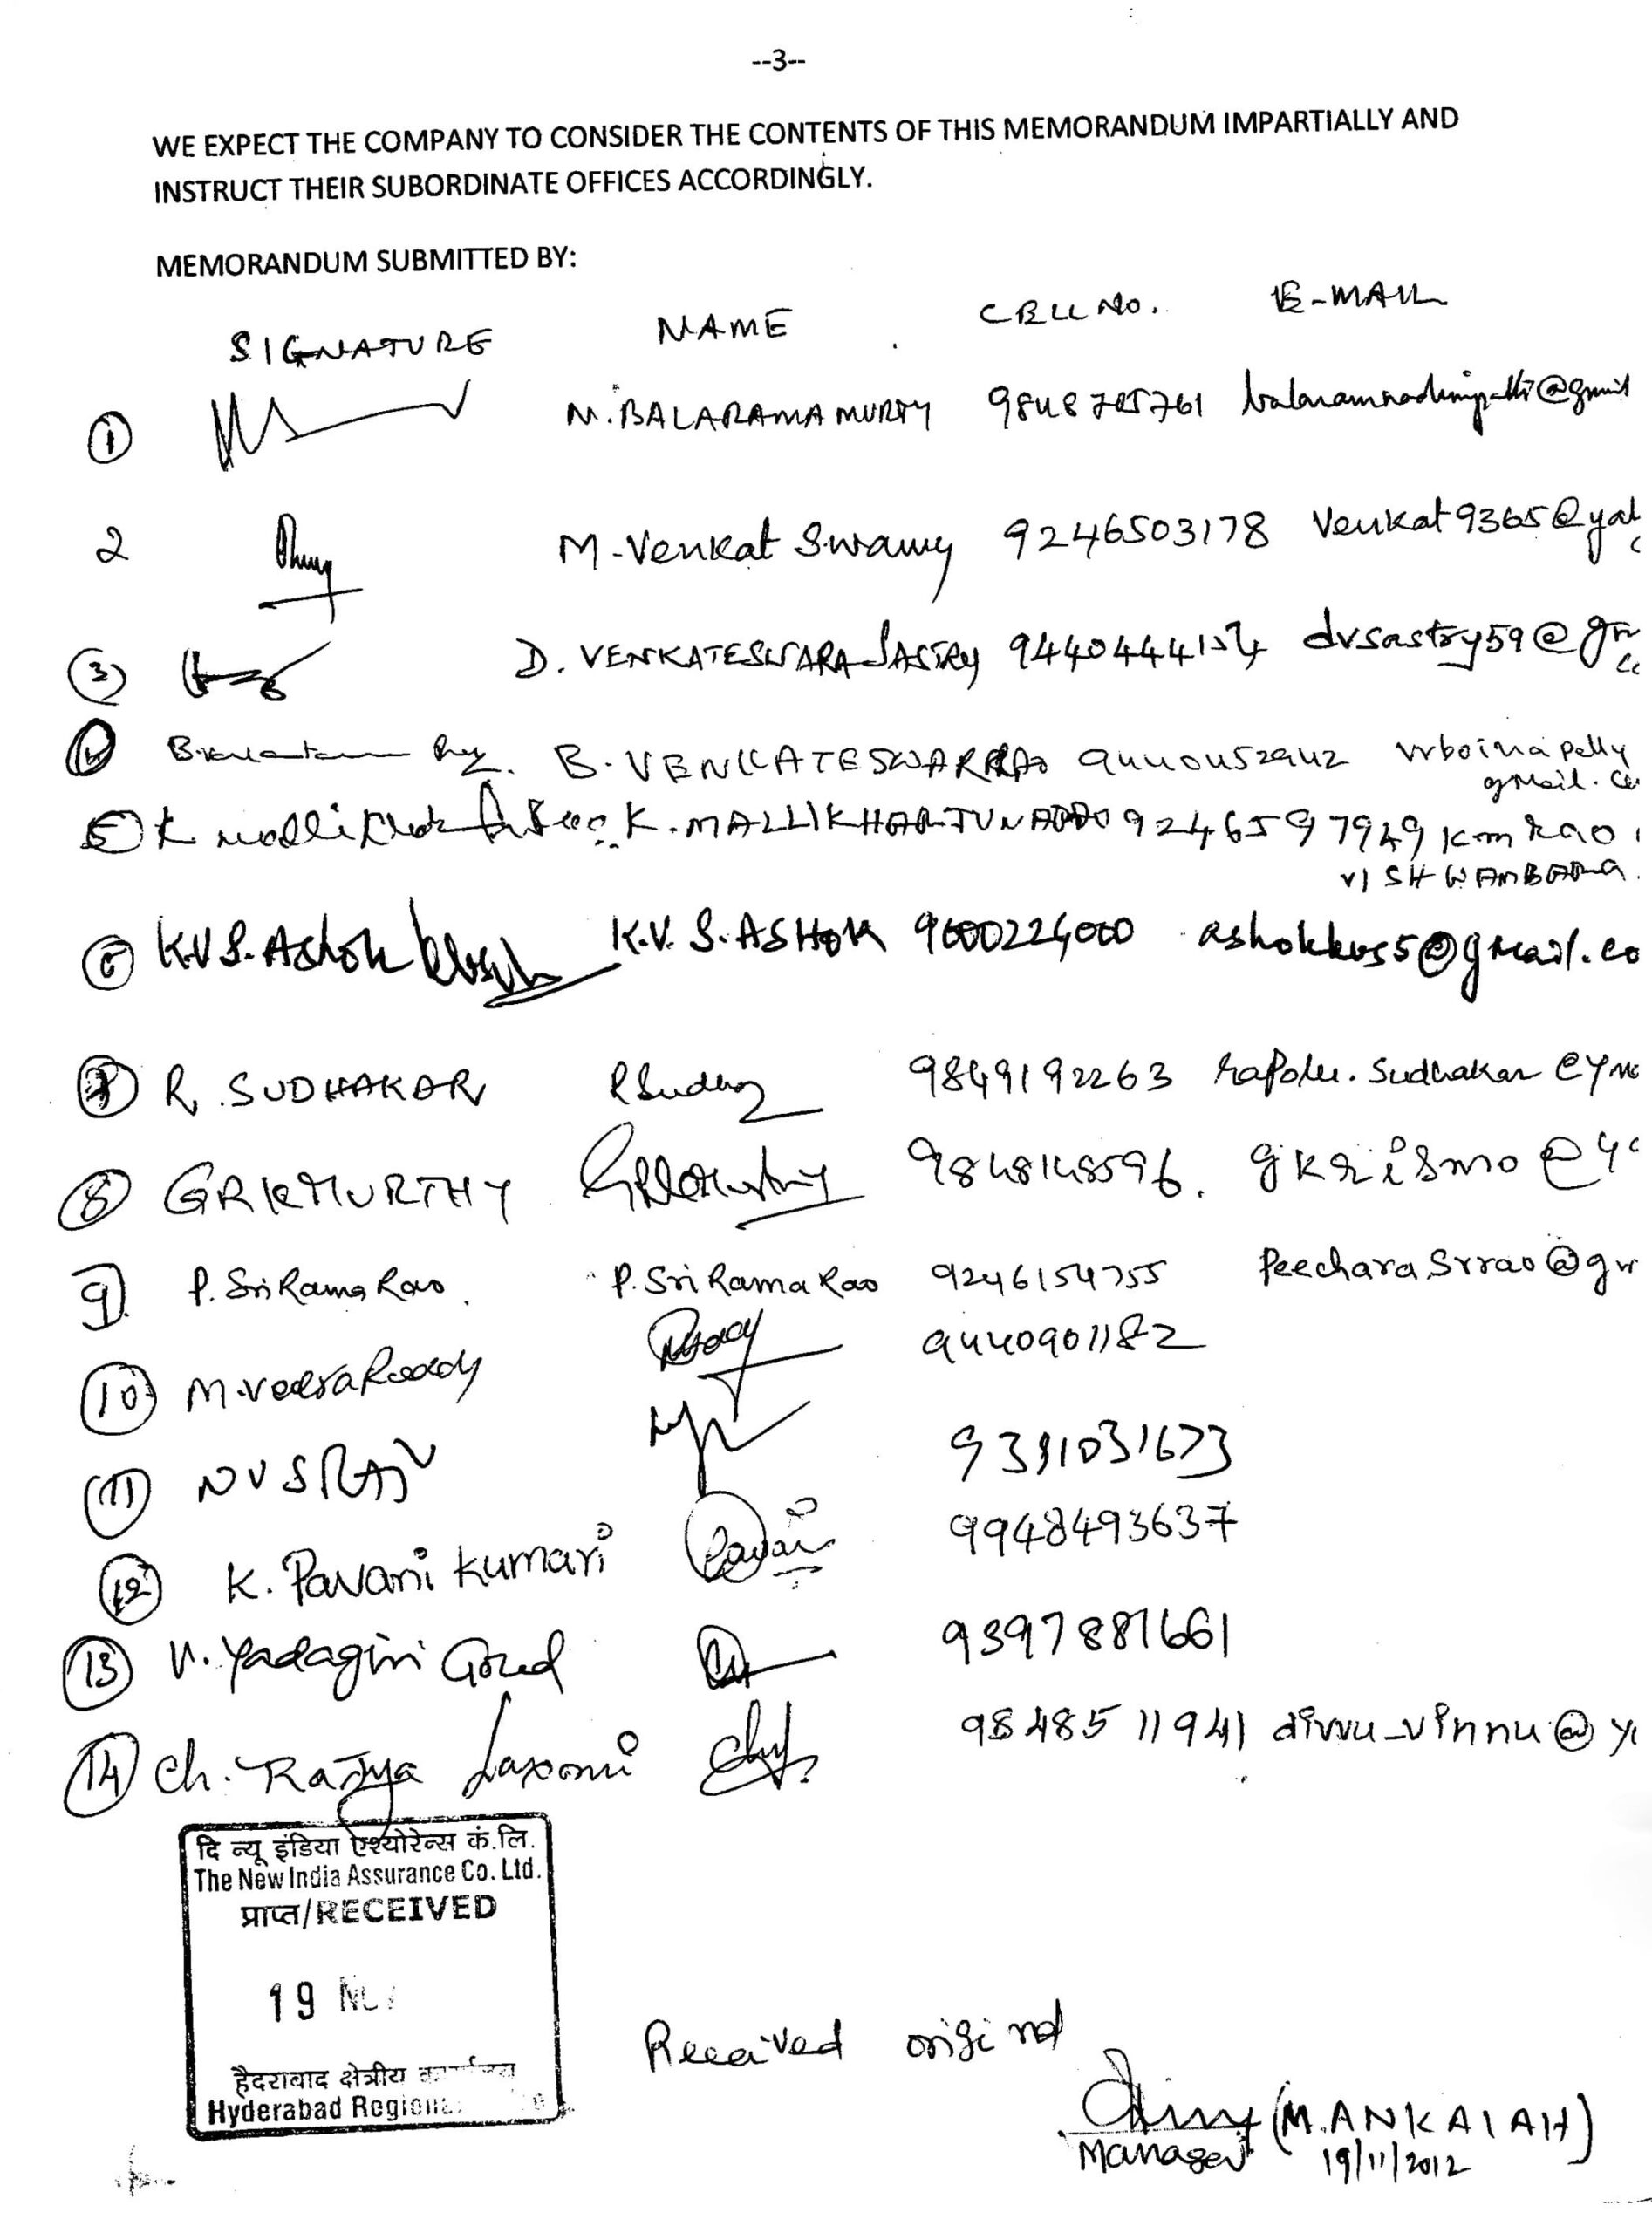 --3--
WE EXPECT THE COMPANY TO CONSIDER THE CONTENTS OF THIS MEMORANDUM IMPARTIALLY AND
INSTRUCT THEIR SUBORDINATE OFFICES ACCORDINGLY.
MEMORANDUM SUBMITTED BY:
SIGNATURE NAME CELL NO. E-MAIL
1 N. BALARAMA MURTY
2 M. Venkat Swamy 9246503178 Venkat9365@yah
3 D. VENKATESWARA SASTRY dvsastry59@gm
4 B. VENKATESWARRAO 9440052942 vrboinapelly
gmail.co
5 K. MALLIKHARJUNARAO 9246597949 kmrao
VISHWAMBARA.
6 K.V.S. Ashok K.V.S. ASHOK ashokkvs5@gmail.co
7 R. SUDHAKAR 9849192263 rapolu.sudhakar@y
8 GRK MURTHY 9848148596. gkrismo@y
9 P. Sri Rama Rao. P. Sri Rama Rao 9246154755 Peecharasrrao@gm
10 M. Veera Reddy 9440901182
11 NVS RAJU 9391031673
12 K. Pavani Kumari Pavani 9948493637
13 V. Yadagiri Goud 9397881661
14 Ch. Rajya Laxmi 9848511941 divvu_vinnu@y
दि न्यू इंडिया एश्योरेन्स कं.लि.
The New India Assurance Co. Ltd.
प्राप्त/RECEIVED
19 NO
हैदराबाद क्षेत्रीय
Hyderabad Regional
Received original
(M. ANKAIAH)
Manager 19/11/2012